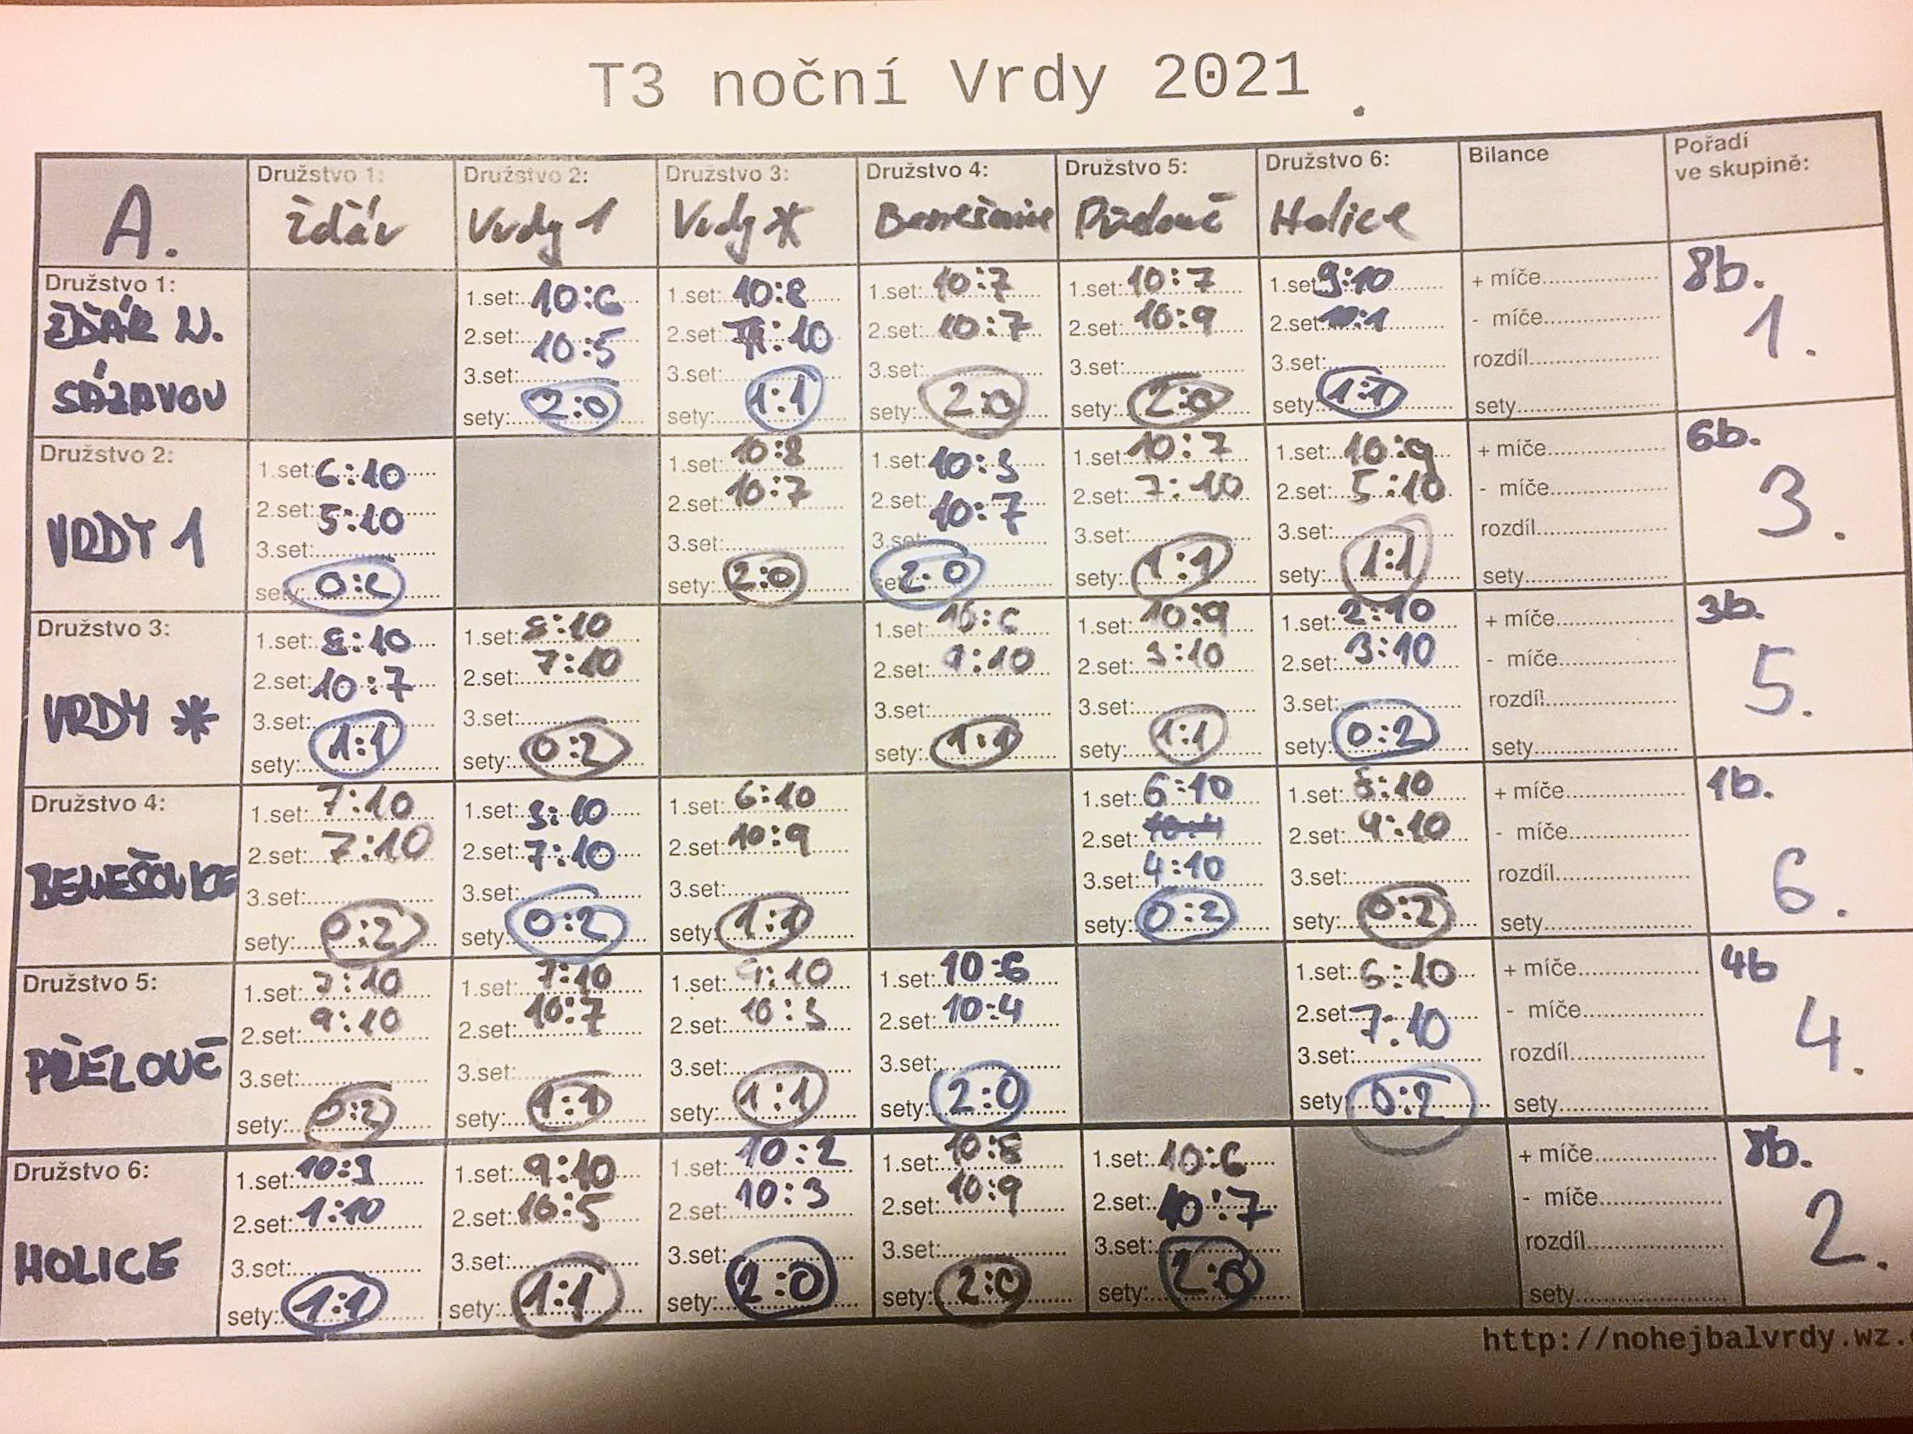 T3 noční Vrdy 2021
A.
Družstvo 1:
Žďár
Družstvo 2:
Vrdy 1
Družstvo 3:
Vrdy *
Družstvo 4:
Benešovice
Družstvo 5:
Přelouč
Družstvo 6:
Holice
Bilance
Pořadí
ve skupině:
Družstvo 1:
ŽĎÁR N.
SÁZAVOU
1.set: 10:6
2.set: 10:5
3.set:
sety: 2:0
1.set: 10:8
2.set: :10
3.set:
sety: 1:1
1.set: 10:7
2.set: 10:7
3.set:
sety: 2:0
1.set: 10:7
2.set: 10:9
3.set:
sety: 2:0
1.set: 9:10
2.set: 10:1
3.set:
sety: 1:1
+ míče
- míče
rozdíl
sety
8b.
1.
Družstvo 2:
VRDY 1
1.set: 6:10
2.set: 5:10
3.set:
sety: 0:2
1.set: 10:8
2.set: 10:7
3.set:
sety: 2:0
1.set: 10:3
2.set: 10:7
3.set:
sety: 2:0
1.set: 10:7
2.set: 7:10
3.set:
sety: 1:1
1.set: 10:9
2.set: 5:10
3.set:
sety: 1:1
+ míče
- míče
rozdíl
sety
6b.
3.
Družstvo 3:
VRDY *
1.set: 8:10
2.set: 10:7
3.set:
sety: 1:1
1.set: 8:10
2.set: 7:10
3.set:
sety: 0:2
1.set: 10:6
2.set: 9:10
3.set:
sety: 1:1
1.set: 10:9
2.set: 3:10
3.set:
sety: 1:1
1.set: 2:10
2.set: 3:10
3.set:
sety: 0:2
+ míče
- míče
rozdíl
sety
3b.
5.
Družstvo 4:
BENEŠOVICE
1.set: 7:10
2.set: 7:10
3.set:
sety: 0:2
1.set: 3:10
2.set: 7:10
3.set:
sety: 0:2
1.set: 6:10
2.set: 10:9
3.set:
sety: 1:1
1.set: 6:10
2.set: 10:4
3.set: 4:10
sety: 0:2
1.set: :10
2.set: 9:10
3.set:
sety: 0:2
+ míče
- míče
rozdíl
sety
1b.
6.
Družstvo 5:
PŘELOUČ
1.set: 7:10
2.set: 9:10
3.set:
sety: 0:2
1.set: 7:10
2.set: 10:7
3.set:
sety: 1:1
1.set: 9:10
2.set: 10:3
3.set:
sety: 1:1
1.set: 10:6
2.set: 10:4
3.set:
sety: 2:0
1.set: 6:10
2.set: 7:10
3.set:
sety: 0:2
+ míče
- míče
rozdíl
sety
4b
4.
Družstvo 6:
HOLICE
1.set: 10:9
2.set: 1:10
3.set:
sety: 1:1
1.set: 9:10
2.set: 10:5
3.set:
sety: 1:1
1.set: 10:2
2.set: 10:3
3.set:
sety: 2:0
1.set: 10:8
2.set: 10:9
3.set:
sety: 2:0
1.set: 10:6
2.set: 10:7
3.set:
sety: 2:0
+ míče
- míče
rozdíl
sety
8b.
2.
http://nohejbalvrdy.wz.